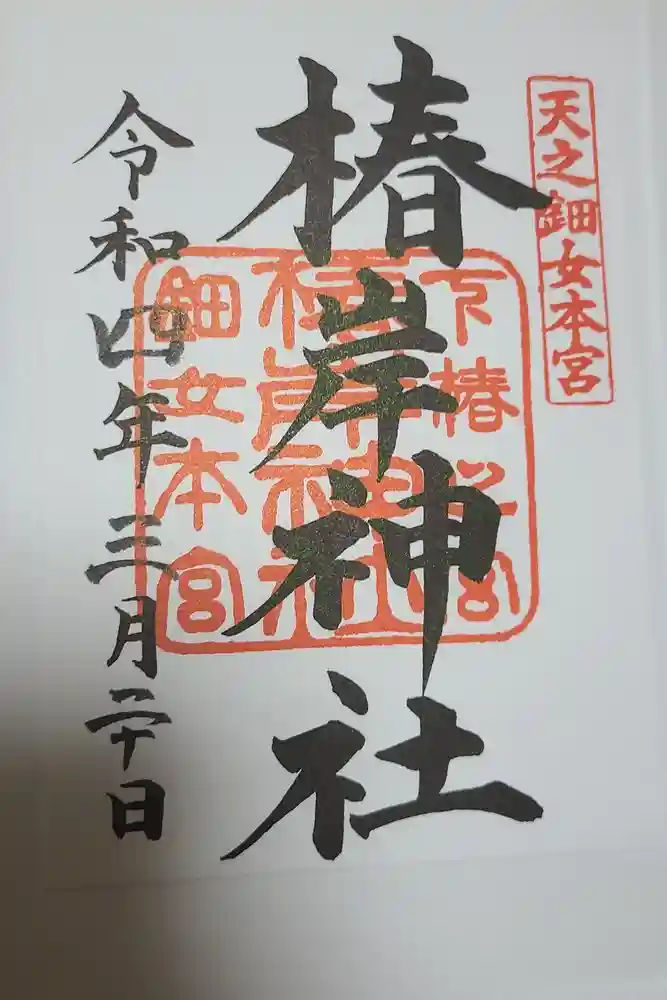 天之鈿女本宮
椿岸神社
下椿之宮
椿岸神社
鈿女本宮
令和四年三月二十日